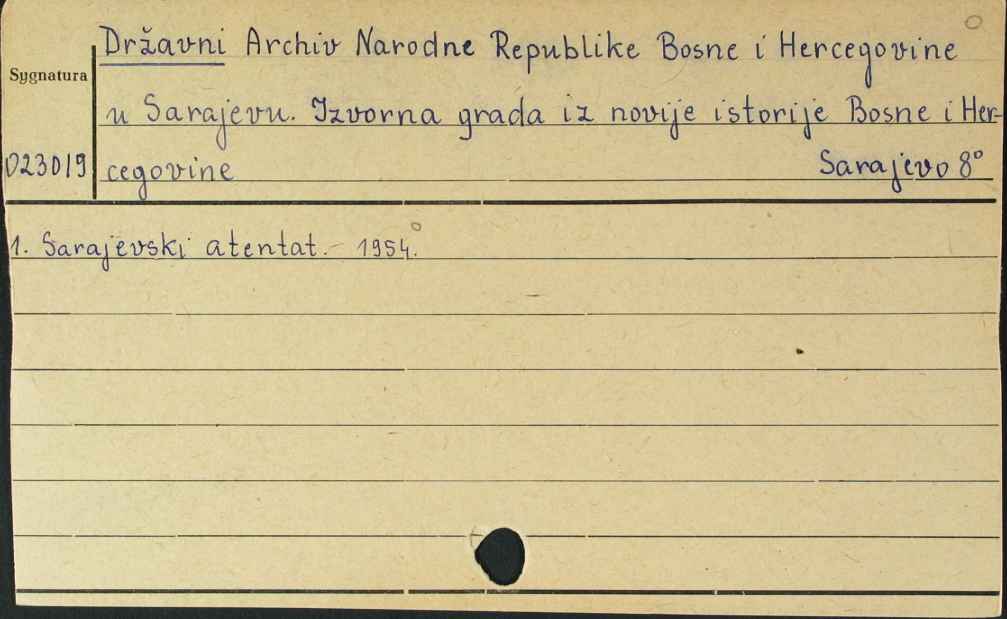 Državni Archiv Narodne Republike Bosne i Hercegovine
Sygnatura
u Sarajevu. Izvorna grada iz novije istorije Bosne i Her-
023019 cegovine Sarajevo 8°
1. Sarajevski atentat. - 1954.